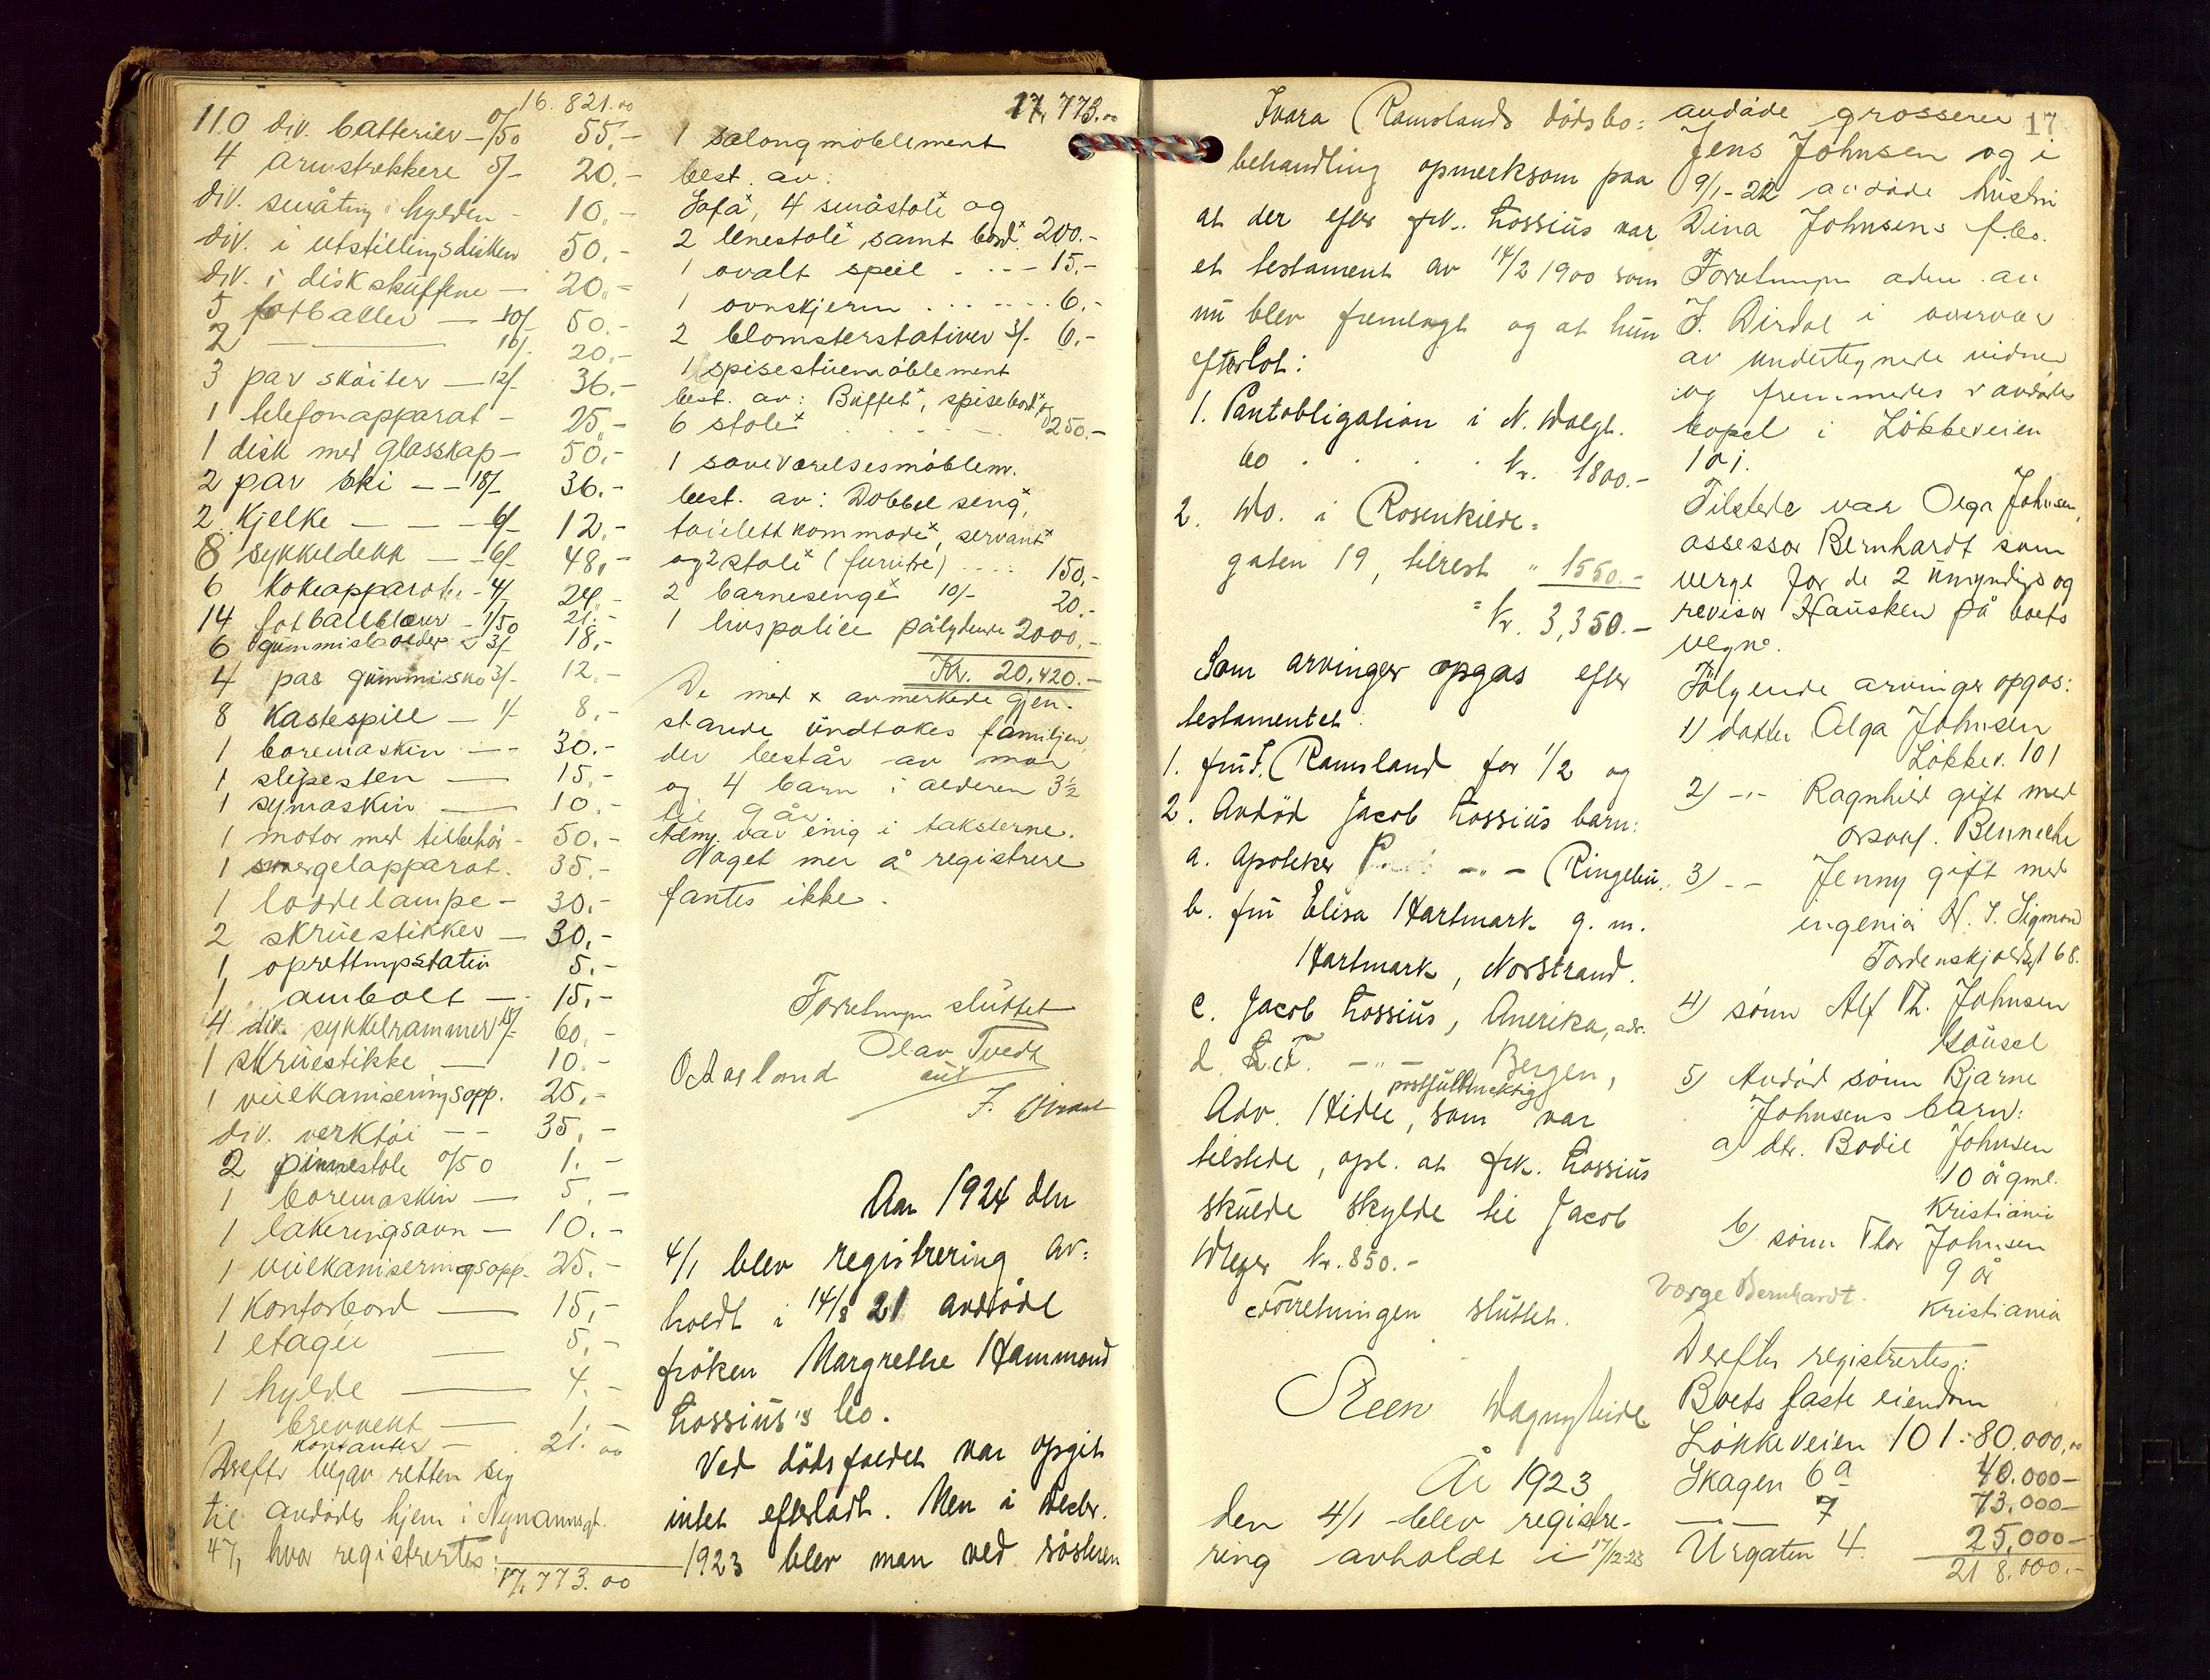 16.821.00
110 div. batterier - 0/50 55.-
4 armstrekkere 5/- 20.-
div. småting i hylden - 10.-
div. i utstillingsdisken 50.-
div. i diskskuffene - 20.-
5 fotballer - 10/- 50.-
2 — 10/- 20.-
3 par skøiter - 12/- 36.-
1 telefonapparat - 25.-
1 disk med glasskap - 50.-
2 par ski - - 18/- 36.-
2 kjelke - - - 6/- 12.-
8 sykkeldekk - - 6/- 48.-
6 kokeapparater - 4/- 24.-
14 fotballblærer - 1/50 21.-
6 gummisåler à 3/- 18.-
4 par gummisko 3/- 12.-
8 kastespill - 1/- 8.-
1 boremaskin - - 30.-
1 slipesten - 15.-
1 symaskin - 10.-
1 motor med tilbehör - 50.-
1 smergelapparat. 35.-
1 loddelampe - 30.-
2 skruestikker - 30.-
1 oprettingsstativ 5.-
1 ambolt - 15.-
4 div. sykkelrammer 15/- 60.-
1 skruestikke - 10.-
1 vulkaniseringsapp. 25.-
div. verktöi - - 35.-
2 pinnestole 0/50 1.-
1 boremaskin - 5.-
1 lakeringsovn - 10.-
1 vulkaniseringsapp. 25.-
1 kontorbord - 15.-
1 etager - 5.-
1 hylde - 4.-
1 brevvekt - 1.-
kontanter - 21.00
Derefter begav retten sig
til avdødes hjem i Nymannsgt.
47, hvor registrertes:
17.773.00
17.773.00
1 salongmöblement
best. av:
Sofaˣ, 4 småstoleˣ og
2 lenestoleˣ, samt bordˣ. 200.-
1 ovalt speil . . - - 15.-
1 ovnskjerm . . . . . 6.-
2 blomsterstativer 3/- 6.-
1 spisestuemöblement
best. av: Buffetˣ, spisebordˣ og
6 stoleˣ . . . . . 250.-
1 soveværelsesmöblem.
best. av: Dobbel sengˣ,
toilettkommodeˣ, servantˣ
og 2 stoleˣ (furutre) . . . . 150.-
2 barnesengeˣ 10/- 20.-
1 livspolice pålydende 2000.-
Kr. 20.420.-
De med x avmerkede gjen-
stande undtokes familjen,
der består av mor
og 4 barn i alderen 3½
til 9 år.
Adm. var enig i taksterne.
Noget mer å registrere
fantes ikke.
Forretningen sluttet
Olav Tvedt
O. Aasland
Aar 1924 den
4/1 blev registrering av-
holdt i 14/8 21 avdöde
fröken Margrethe Hammond
Lossius's bo.
Ved dödsfaldet var opgit
intet efterladt. Men i Decbr.
1923 blev man ved søsteren
17
Ivara Ramslands dödsbo-
behandling opmerksom paa
at der efter frk. Lossius var
et testament av 14/2 1900 som
nu blev fremlagt og at hun
efterlot:
1. Pantobligation i N. Holegt.
60 . . . . kr. 1800.-
2. Do. i Rosenkilde-
gaten 19, tilrest " 1550.-
= kr. 3,350.-
Som arvinger opgas efter
testamentet:
1. fru I. Ramsland for 1/2 og
2. Avdöd Jacob Lossius barn:
a. Apoteker -"- Ringebu,
b. fru Elisa Hartmark g. m.
Hartmark, Norstrand.
c. Jacob Lossius, Amerika, adr.
d. L. F. -"- Bergen,
postfullmektig
Adv. Hidle, som var
tilstede, opl. at frk. Lossius
skulde skylde til Jacob
Meyer kr. 850.-
Forretningen sluttet.
Steen Dagny Hidle
År 1923
den 4/1 blev registre-
ring avholdt i 17/12-23
avdöde grosserer
Jens Johnsen og i
9/1-22 avdöde hustru
Dina Johnsens f.bo.
Forretningen adm. av
J. Dirdal i overvær
av undertegnede vidner
og fremmedes i avdödes
bopel i Lökkeveien
101.
Tilstede var Olga Johnsen,
assessor Bernhardt som
verge for de 2 umyndige og
revisor Hausken på boets
vegne.
Fölgende arvinger opgas:
1) datter Olga Johnsen
Lökkev. 101
2) -"- Ragnhild gift med
orsakf. Benneche
3) -"- Jenny gift med
ingeniör N. S. Sigmond
Tordenskjoldsgt 68.
4) sönn Alf Th. Johnsen
5) Avdöd sönn Bjarne
Johnsens barn:
a) dtr. Bodil Johnsen
10 år gml.
Kristiania
b) sönn Thor Johnsen
9 år
Kristiania
Verge Bernhardt.
Derefter registrertes:
Boets faste eiendom
Lökkeveien 101 - 80.000.00
Skagen 6a 40.000-
— 7 73.000-
Urgaten 4. 25.000-
218.000.-